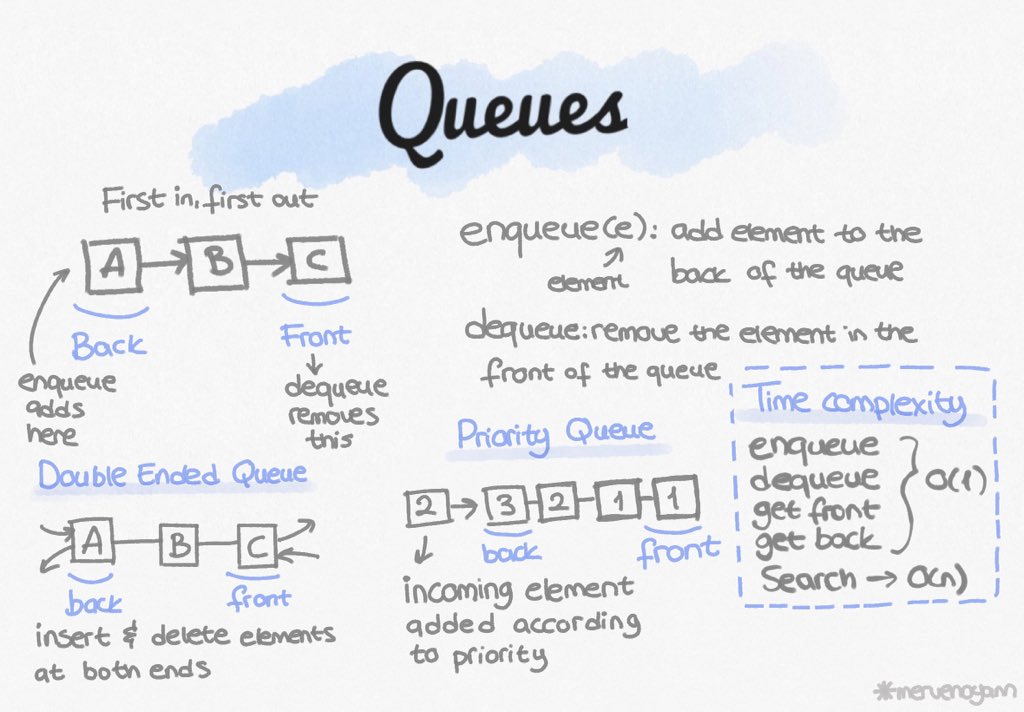 Queues
First in, first out
A B C
Back
Front
enqueue
adds
here
dequeue
removes
this
enqueue(e): add element to the
element
back of the queue
dequeue: remove the element in the
front of the queue
Double Ended Queue
A B C
back
front
insert & delete elements
at both ends
Priority Queue
2 3 2 1 1
back
front
incoming element
added according
to priority
Time complexity
enqueue
dequeue
get front
get back
O(1)
Search → O(n)
*mervenoyann